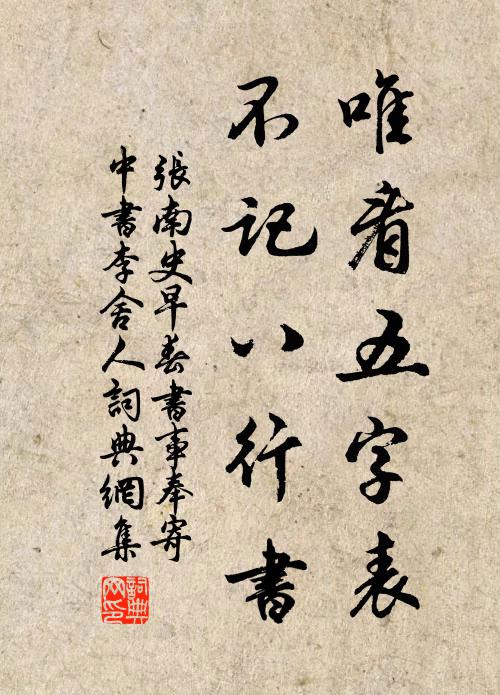 唯看五字表
不记八行書
張南史早春書事奉寄
中書李舍人詞典網集
詞典网印